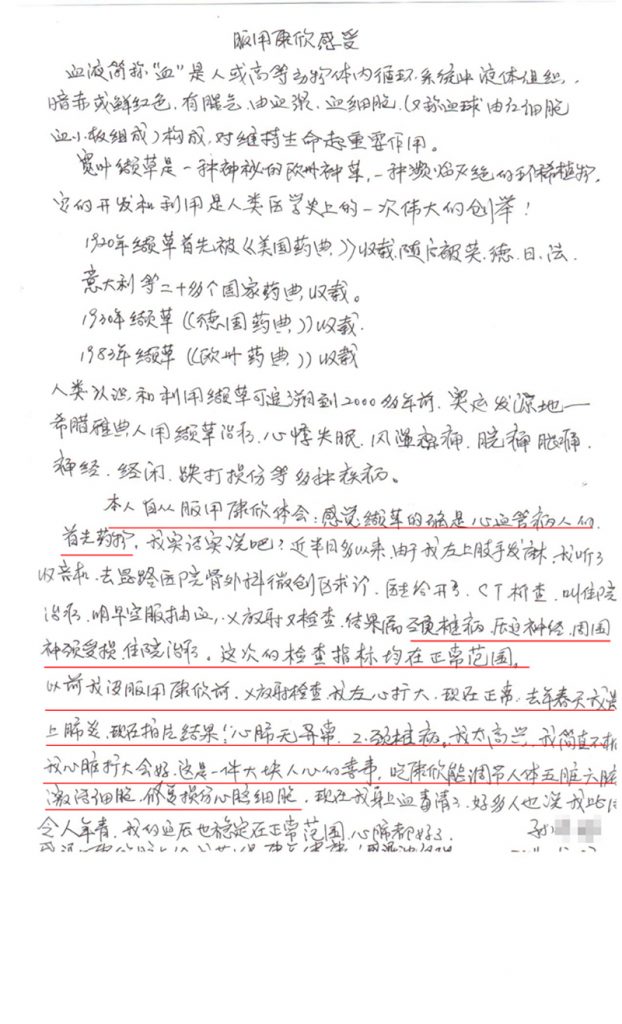 服用康欣感受
血液简称"血"是人或高等动物体内循环系统中液体组织,
暗赤或鲜红色,有腥气,由血浆、血细胞(又称血球由红细胞
血小板组成)构成,对维持生命起重要作用。
宽叶缬草是一种神秘的欧州神草,一种濒焰灭绝的环稀植物,
它的开发和利用是人类医学史上的一次伟大的创举!
1920年缬草首先被《美国药典》收载,随后被英、德、日、法、
意大利等二十多个国家药典收载。
1930年缬草《德国药典》收载.
1983年缬草《欧州药典》收载
人类认识和利用缬草可追溯到2000多年前.奥运发源地—
希腊雅典人用缬草治疗,心悸失眠、风湿痹痛、脘痛腹痛、
神经、经闭、跌打损伤等多种疾病。
本人自从服用康欣体会:感觉缬草的确是心血管病人们
首先药物,我实话实说吧?近半月多以来,由于我左上肢手发麻,我听了
收音机,去 医院骨外科微创区求诊,医生给开了、CT检查,叫住院
治疗,明早空服抽血,X放射又检查,结果属颈椎病,压迫神经,周围
神颈受损,住院治疗。这次的检查指标均在正常范围。
以前我没服用康欣前,X放射检查,我左心扩大,现在正常.去年春天我
上肺炎,现在拍片结果:1.心肺无异常.2.颈椎病。我太高兴,我简直不
我心脏扩大会好,这是一件大块人心的喜事,吃康欣能调节人体五脏六腑
激活细胞,修复损伤心脏细胞,现在我身上血毒清了,好多人也说我
令人年青,我的血压也稳定在正常范围,心脏都好了.